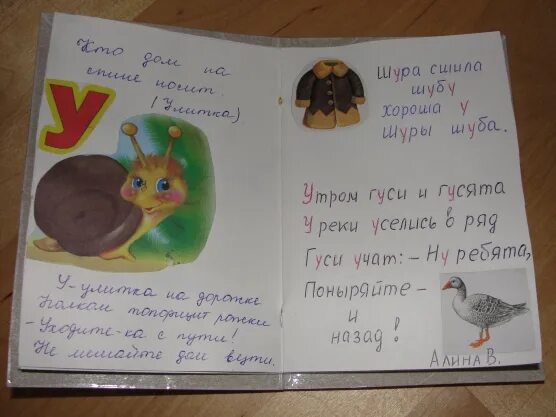 Кто дом на
спине носит.
(Улитка)
У
У-улитка на дорожке
Палкой топорщит рожки
- Уходите-ка с пути!
Не мешайте дом везти.
Шура сшила
шубу
хороша у
Шуры шуба.
Утром гуси и гусята
У реки уселись в ряд
Гуси учат: - Ну ребята,
Поныряйте -
и
назад!
Алина В.